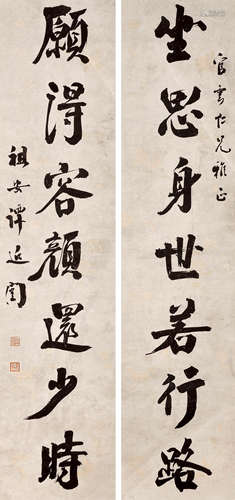 坐思身世若行路
官雲仁兄雅正
願得容顏還少時
祖安譚延闓